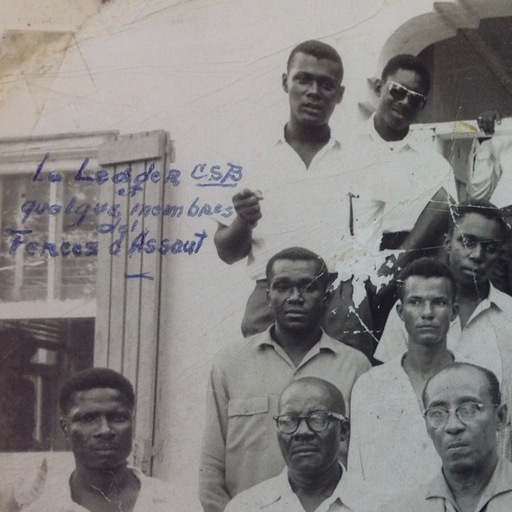 Le Leader CSB
et
quelque membres
des
Forces d'Assaut